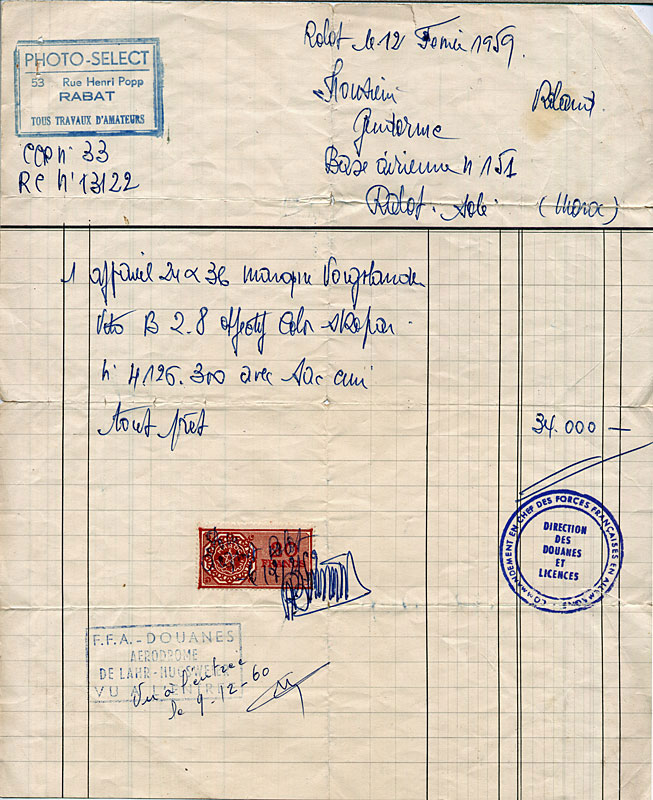 PHOTO-SELECT
53 Rue Henri Popp
RABAT
TOUS TRAVAUX D'AMATEURS
CCP n° 33
RC n° 13122
Rabat le 12 Février 1959.
Monsieur Roland
Gendarme
Base aérienne n 151
Rabat. Salé (Maroc)
1 appareil 24 x 36 marque Voigtlander
Vito B 2.8 objectif Color Skopar
n° 4.126.300 avec sac cuir
34.000 —
COMMANDEMENT EN CHEF DES FORCES FRANÇAISES EN ALLEMAGNE
DIRECTION
DES
DOUANES
ET
LICENCES
20
F.F.A.-DOUANES
AERODROME
DE LAHR-HUGSWEIER
VU A L'ENTREE
Vu à l'entrée
le 9-12-60